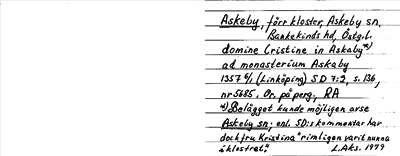 Askeby, förr kloster, Askeby sn,
Bankekinds hd, Östg.l.
domine Cristine in Askaby *)
ad monasterium Askaby
1357 6/1 (Linköping) SD 7:2, s. 136,
nr 5685. Or. på perg., RA
*) Belägget kunde möjligen avse
Askeby sn; enl. SD:s kommentar har
dock fru Kristina "rimligen varit nunna
i klostret."
L.Aks. 1979